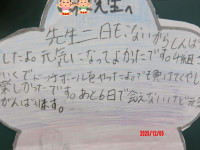 先生へ
先生二日もいないからしんぱい
したよ。元気になってよかったです。4組さ
いくでドッチボールをやったよ。でも負けてくやし
楽しかったです。あと6日で会えないけど元気
がんばります。
2023/12/03